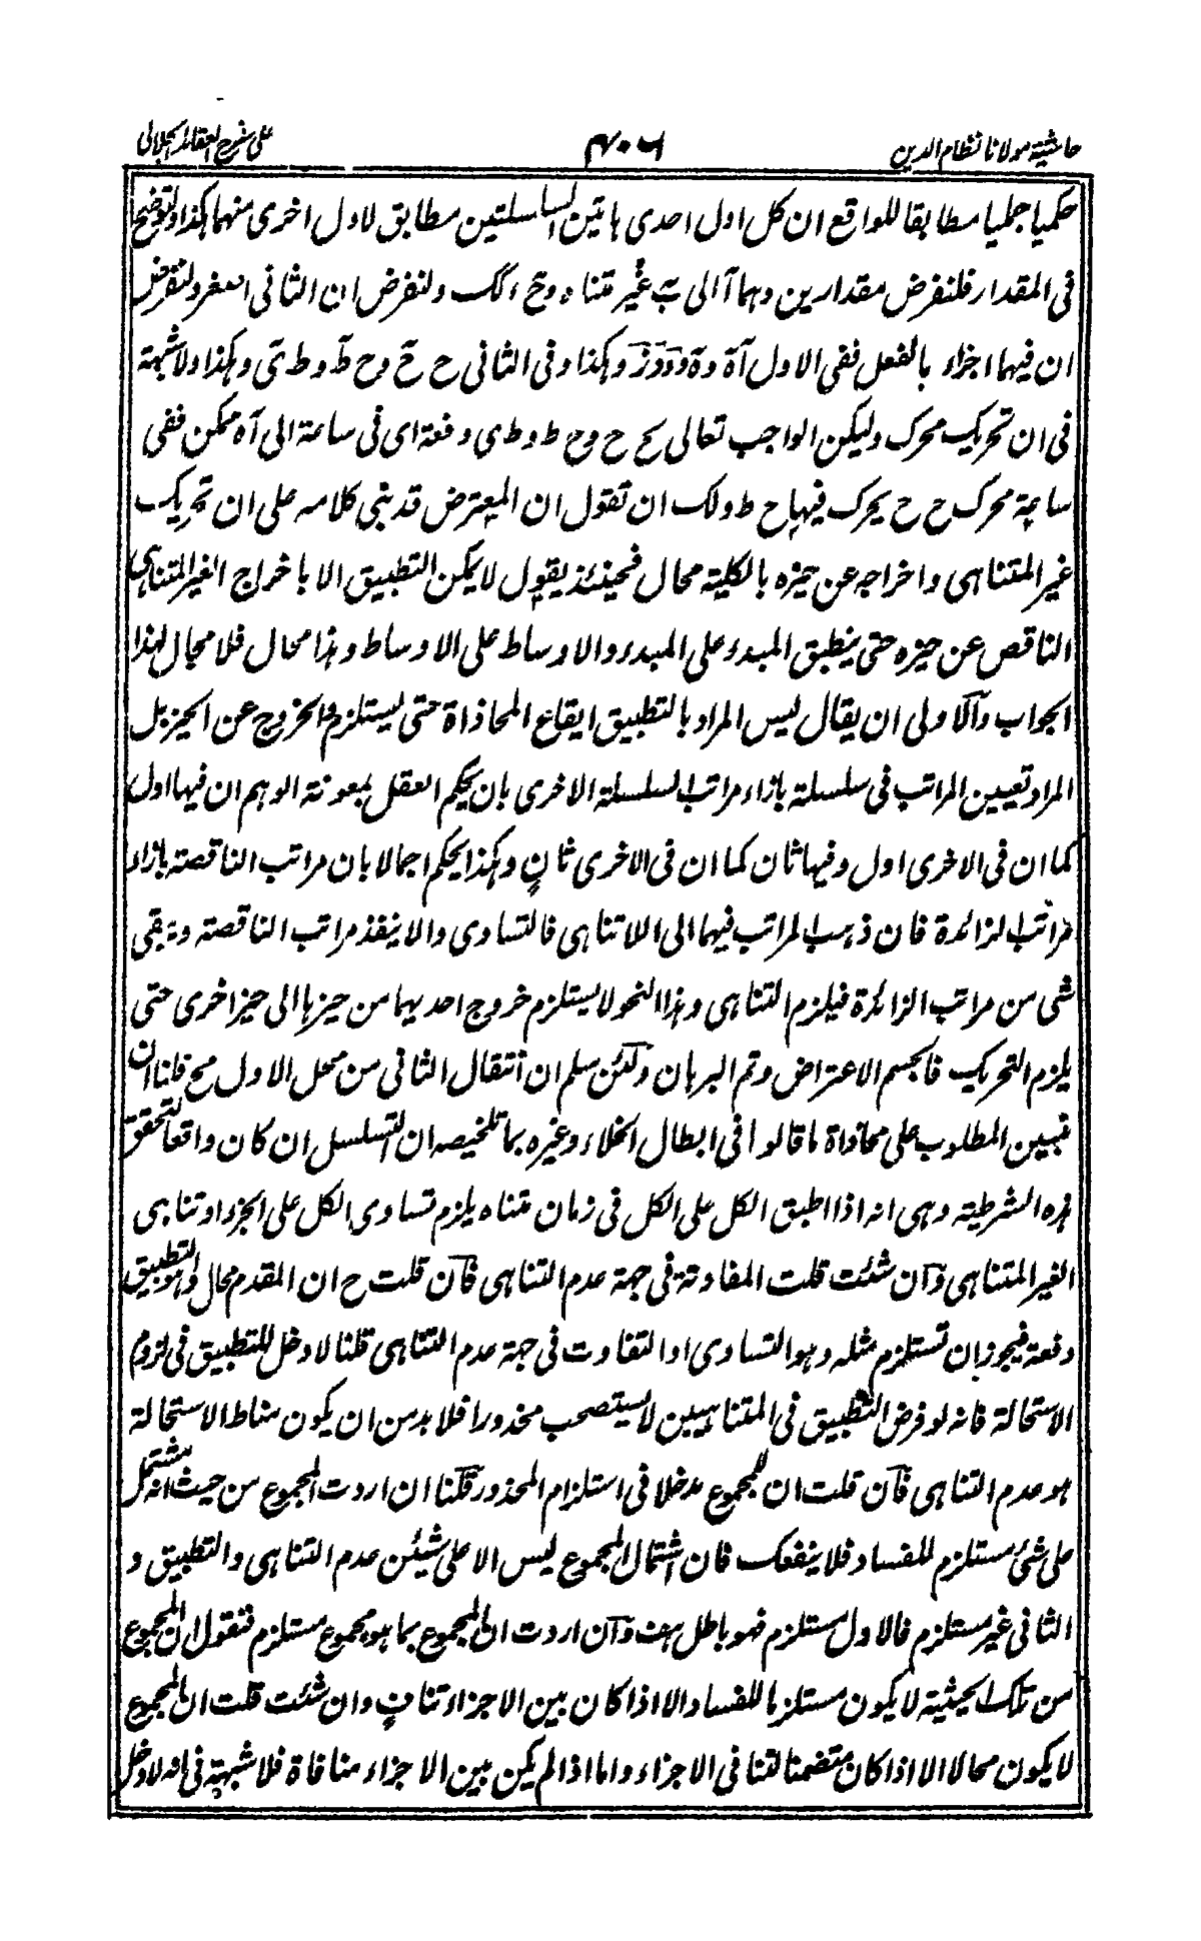 حاشية مولانا نظام الدين
على شرح العقائد الجلالى
حكميا جمليا مطابقا للواقع ان كل اول احدى هاتين السلسلتين مطابق لاول اخرى منهما هكذا ولتوضح
فى المقدار فلنفرض مقدارين وهما آ الى ب غير متناه و ح ولنفرض ان الثانى اصغر ولنفرض
ان فيهما اجزاء بالفعل ففى الاول آه و ه و و و ز وهكذا وفى الثانى ح ح و ح ط و ط ى وهكذا ولا شبهة
فى ان تحريك محرك وليكن الواجب تعالى ح ح و ح ط و ط ى دفعة اى فى ساعة الى آه ممكن ففى
ساعة محرك ح ح يحرك فيها ح ط ولك ان تقول ان المعترض قد بنى كلامه على ان تحريك
غير المتناهى واخراجه عن حيزه بالكلية محال فحينئذ يقول لا يمكن التطبيق الا باخراج الغير المتناهى
الناقص عن حيزه حتى ينطبق المبدء على المبدء والاوساط على الاوساط وهذا محال فلا مجال لهذا
الجواب والاولى ان يقال ليس المراد بالتطبيق ايقاع المحاذاة حتى يستلزم الخروج عن الحيز بل
المراد تعيين المراتب فى سلسلة بازاء مراتب السلسلة الاخرى بان يحكم العقل بمعونة الوهم ان فيها اول
كما ان فى الاخرى اول وفيها ثان كما ان فى الاخرى ثانٍ وهكذا يحكم اجمالا بان مراتب الناقصة بازاء
مراتب الزائدة فان ذهب المراتب فيهما الى اللاتناهى فالتساوى والا ينفذ مراتب الناقصة وتبقى
شى من مراتب الزائدة فيلزم التناهى وهذا النحو لا يستلزم خروج احديهما من حيزها الى حيز اخرى حتى
يلزم التحريك فانجسم الاعتراض وتم البرهان ولئن سلم ان انتقال الثانى من محل الاول مح فلنا ان
نبين المطلوب على محاذاة ما قالوا فى ابطال الخلاء وغيره بما تلخيصه ان التسلسل ان كان واقعا لتحقق
هذه الشرطية وهى انه اذا اطبق الكل على الكل فى زمان متناه يلزم تساوى الكل على الجزء او تناهى
الغير المتناهى وان شئت قلت المفاوتة فى جهة عدم التناهى فان قلت ح ان المقدم محال وهو التطبيق
دفعة فيجوز بان تستلزم مثله وهو التساوى او التفاوت فى جهة عدم التناهى قلنا لا دخل للتطبيق فى لزوم
الاستحالة فانه لو فرض التطبيق فى المتناهيين لا يستصحب محذورا فلا بد من ان يكون مناط الاستحالة
هو عدم التناهى فان قلت ان للمجموع مدخلا فى استلزام المحذور قلنا ان اردت المجموع من حيث انه مشتمل
على شئ مستلزم للفساد فلا ينفعك فان اشتمال المجموع ليس الا على شيئين عدم التناهى والتطبيق و
الثانى غير مستلزم فالاول مستلزم فهو باطل هف وان اردت ان المجموع بما هو مجموع مستلزم فنقول ان المجموع
من تلك الحيثية لا يكون مستلزما للفساد الا اذا كان بين الاجزاء تنافٍ وان شئت قلت ان المجموع
لا يكون محالا الا اذا كان متضمنا لتنافى الاجزاء واما اذا لم يكن بين الاجزاء منافاة فلا شبهة فى انه لا دخل